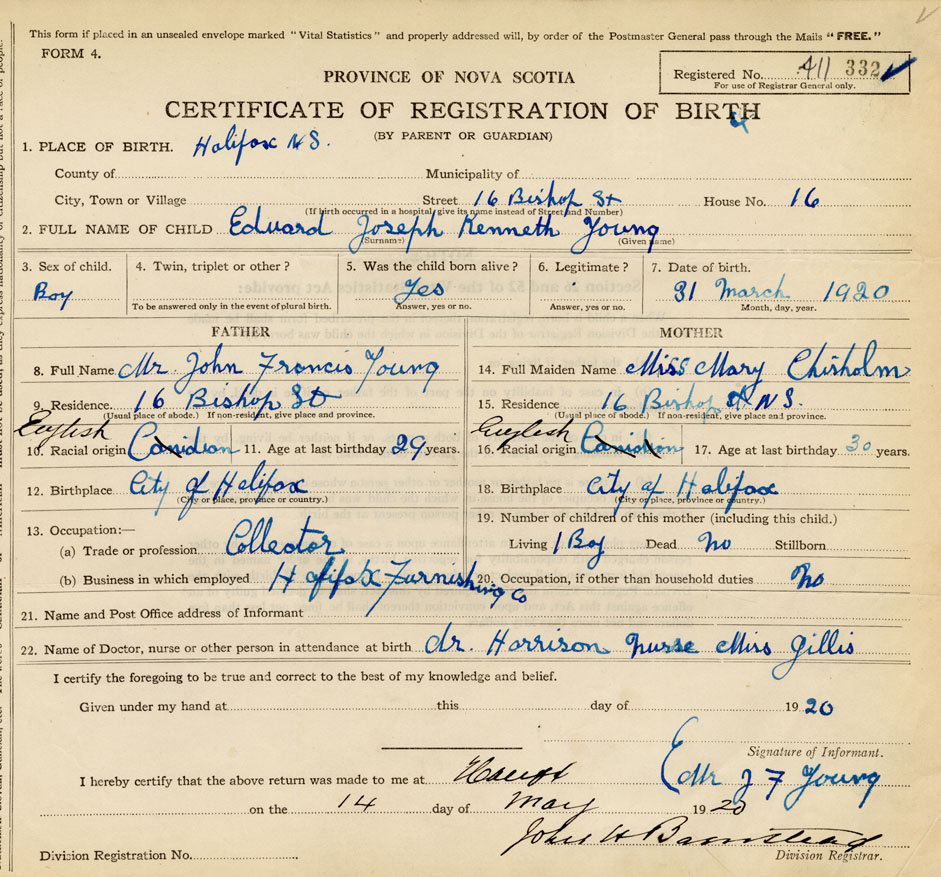 This form if placed in an unsealed envelope marked "Vital Statistics" and properly addressed will, by order of the Postmaster General pass through the Mails "FREE."
FORM 4.
PROVINCE OF NOVA SCOTIA
Registered No. 411 332
For use of Registrar General only.
CERTIFICATE OF REGISTRATION OF BIRTH
(BY PARENT OR GUARDIAN)
1. PLACE OF BIRTH. Halifax N S.
County of Municipality of
City, Town or Village Street 16 Bishop St House No. 16
(If birth occurred in a hospital give its name instead of Street and Number)
2. FULL NAME OF CHILD Eduard Joseph Kenneth Young
(Surname) (Given name)
3. Sex of child. 4. Twin, triplet or other? 5. Was the child born alive? 6. Legitimate? 7. Date of birth.
Boy Yes 31 March 1920
To be answered only in the event of plural birth. Answer, yes or no. Answer, yes or no. Month, day, year.
FATHER MOTHER
8. Full Name Mr. John Francis Young 14. Full Maiden Name Miss Mary Chisholm
9. Residence. 16 Bishop St 15. Residence 16 Bishop St N S.
(Usual place of abode.) If non-resident, give place and province. (Usual place of abode.) If non-resident, give place and province.
English English
10. Racial origin Canidian 11. Age at last birthday 29 years. 16. Racial origin Canidian 17. Age at last birthday 30 years.
12. Birthplace City of Halifax 18. Birthplace City of Halifax
(City or place, province or country.) (City or place, province or country.)
13. Occupation:— 19. Number of children of this mother (including this child.)
(a) Trade or profession Collector Living 1 Boy Dead No Stillborn
(b) Business in which employed Halifax Furnishing Co 20. Occupation, if other than household duties No
21. Name and Post Office address of Informant
22. Name of Doctor, nurse or other person in attendance at birth dr. Harrison nurse Miss Gillis
I certify the foregoing to be true and correct to the best of my knowledge and belief.
Given under my hand at this day of 1920
Signature of Informant.
I hereby certify that the above return was made to me at Mr J F Young
on the 14 day of May 1920
John H Barnstead
Division Registration No. Division Registrar.